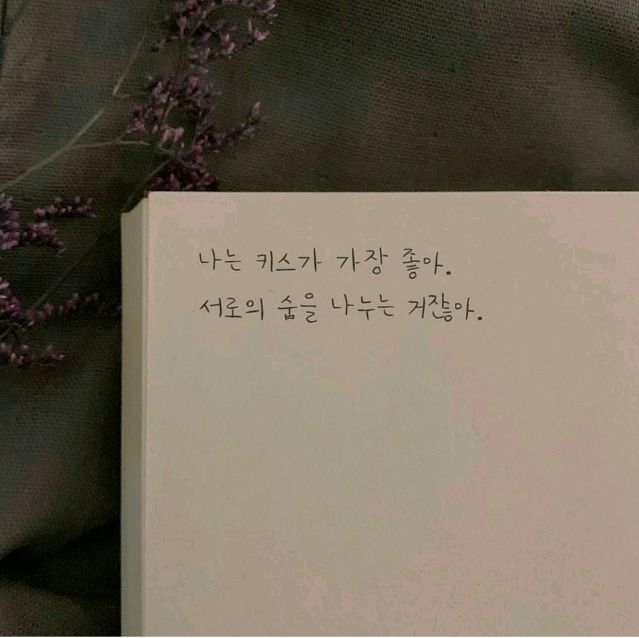 나는 키스가 가장 좋아.
서로의 숨을 나누는 거잖아.